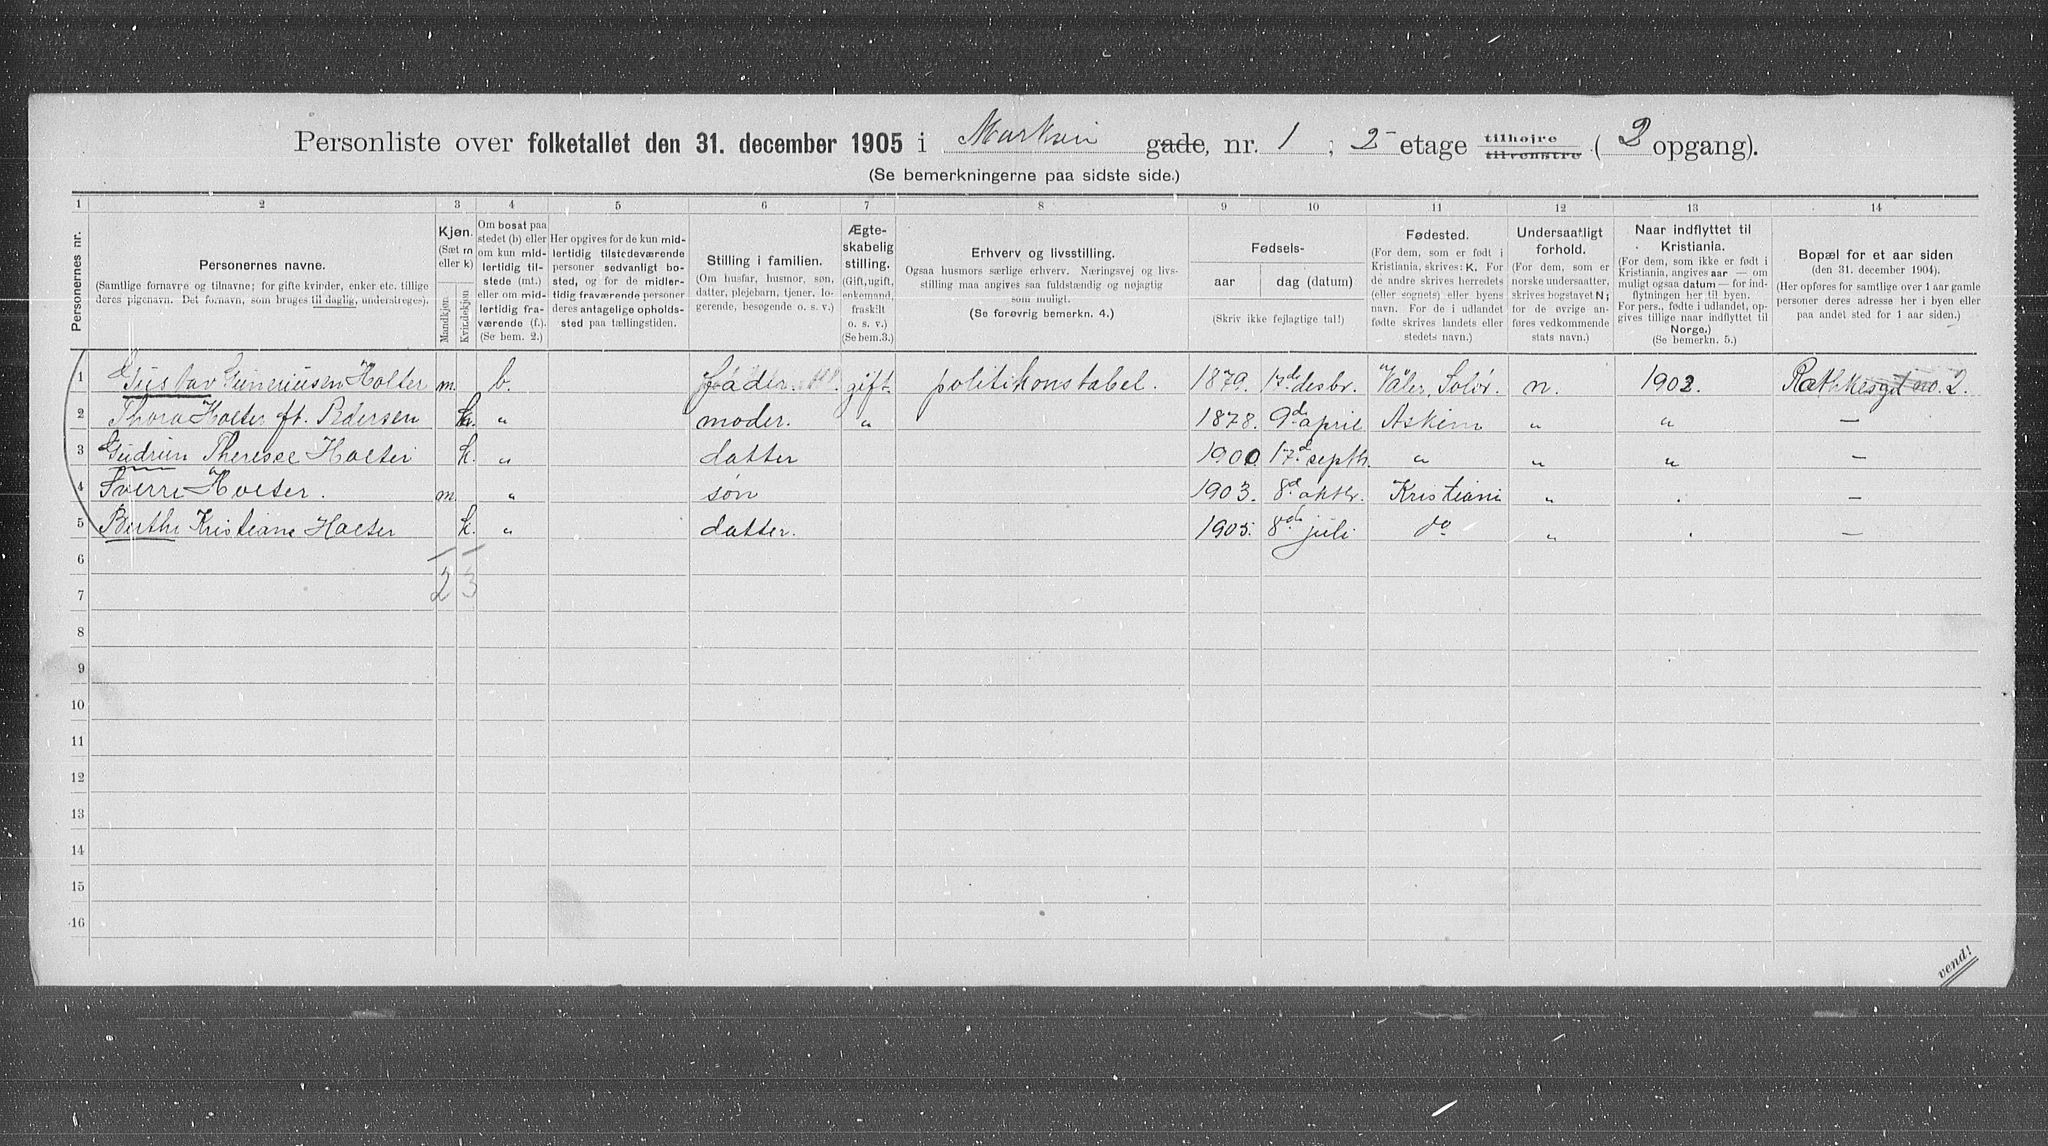 Personliste over folketallet den 31. december 1905 i Markvei gade, nr. 1 ; 2 etage tilhøjre tilvenstre ( 2 opgang).
(Se bemerkningerne paa sidste side.)
1 2 3 4 5 6 7 8 9 10 11 12 13 14
Personernes nr.
Personernes navne.
(Samtlige fornavre og tilnavne; for gifte kvinder, enker etc. tillige deres pigenavn. Det fornavn, som bruges til daglig, understreges).
Kjøn.
(Sæt m eller k)
Mandkjøn.
Kvindekjøn
Om bosat paa stedet (b) eller om kun midlertidig tilstede (mt.) eller om midlertidig fraværende (f.). (Se bem. 2.)
Her opgives for de kun midlertidig tilstedeværende personer sedvanligt bosted, og for de midlertidig fraværende personer deres antagelige opholdssted paa tællingstiden.
Stilling i familien.
(Om husfar, husmor, søn, datter, plejebarn, tjener, logerende, besøgende o. s. v.)
Ægteskabelig stilling.
(Gift, ugift, enkemand, fraskilt o. s. v.)
(Se bem.3.)
Erhverv og livsstilling.
Ogsaa husmors særlige erhverv. Næringsvej og livsstilling maa angives saa fuldstændig og nøjagtig som muligt.
(Se forøvrig bemerkn. 4.)
Fødsels-
aar dag (datum)
(Skriv ikke fejlagtige tal!)
Fødested.
(For dem, som er født i Kristiania, skrives: K. For de andre skrives herredets (eller sognets) eller byens navn. For de i udlandet fødte skrives landets eller stedets navn.)
Undersaatligt forhold.
(For dem, som er norske undersaatter, skrives bogstavet N; for de øvrige anføres vedkommende stats navn.)
Naar indflyttet til Kristiania.
(For dem, som ikke er født i Kristiania, angives aar — om muligt ogsaa datum — for indflytningen her til byen. For pers., fødte i udlandet, opgives tillige naar indflyttet til Norge.)
(Se bemerkn. 5.)
Bopæl for et aar siden
(den 31. december 1904).
(Her opføres for samtlige over 1 aar gamle personer deres adresse her i byen eller paa andet sted for 1 aar siden.)
1 Gustav Guneriusen Holter m. b. fader. gift. politikonstabel. 1879. 17de desbr. Våler, Solør. n. 1902 Rathkesgt no. 2.
2 Thora Holter ft. Pedersen k. " moder. " 1878. 9de april Askim " " —
3 Gudrun Therese Holter k. " datter 1900. 17d septbr. " " " —
4 Sverre Holter. m. " søn 1903. 8d oktbr. Kristiani " . —
5 Berthe Kristiane Holter k. " datter. 1905. 8de juli do " . —
6
2 3
7
8
9
10
11
12
13
14
15
16
vend!